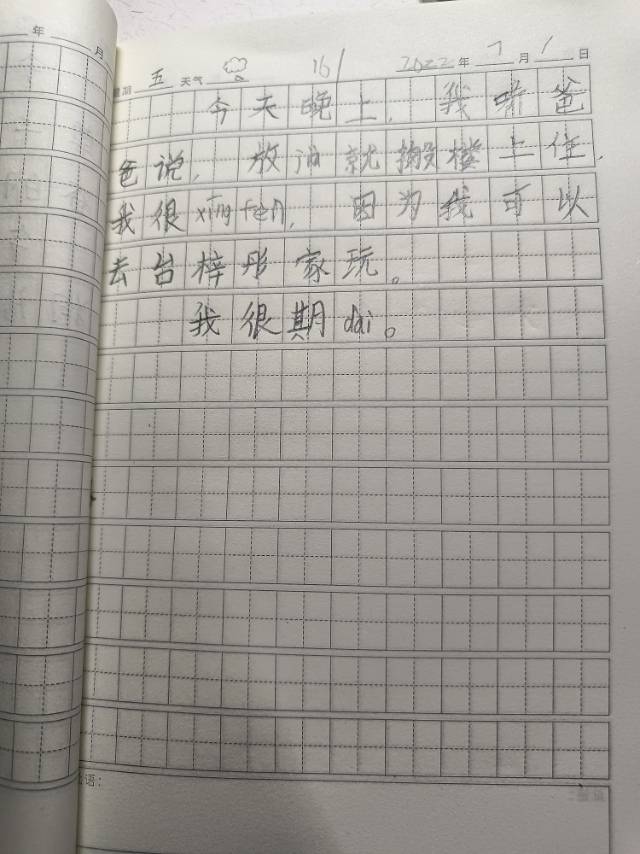 年 月
星期 五 天气 161 2022 年 7 月 1 日
今天晚上,我听爸
爸说,放 就搬楼上住,
我很xīng fèn,因为我可以
去台梓彤家玩。
我很期dài。
语: